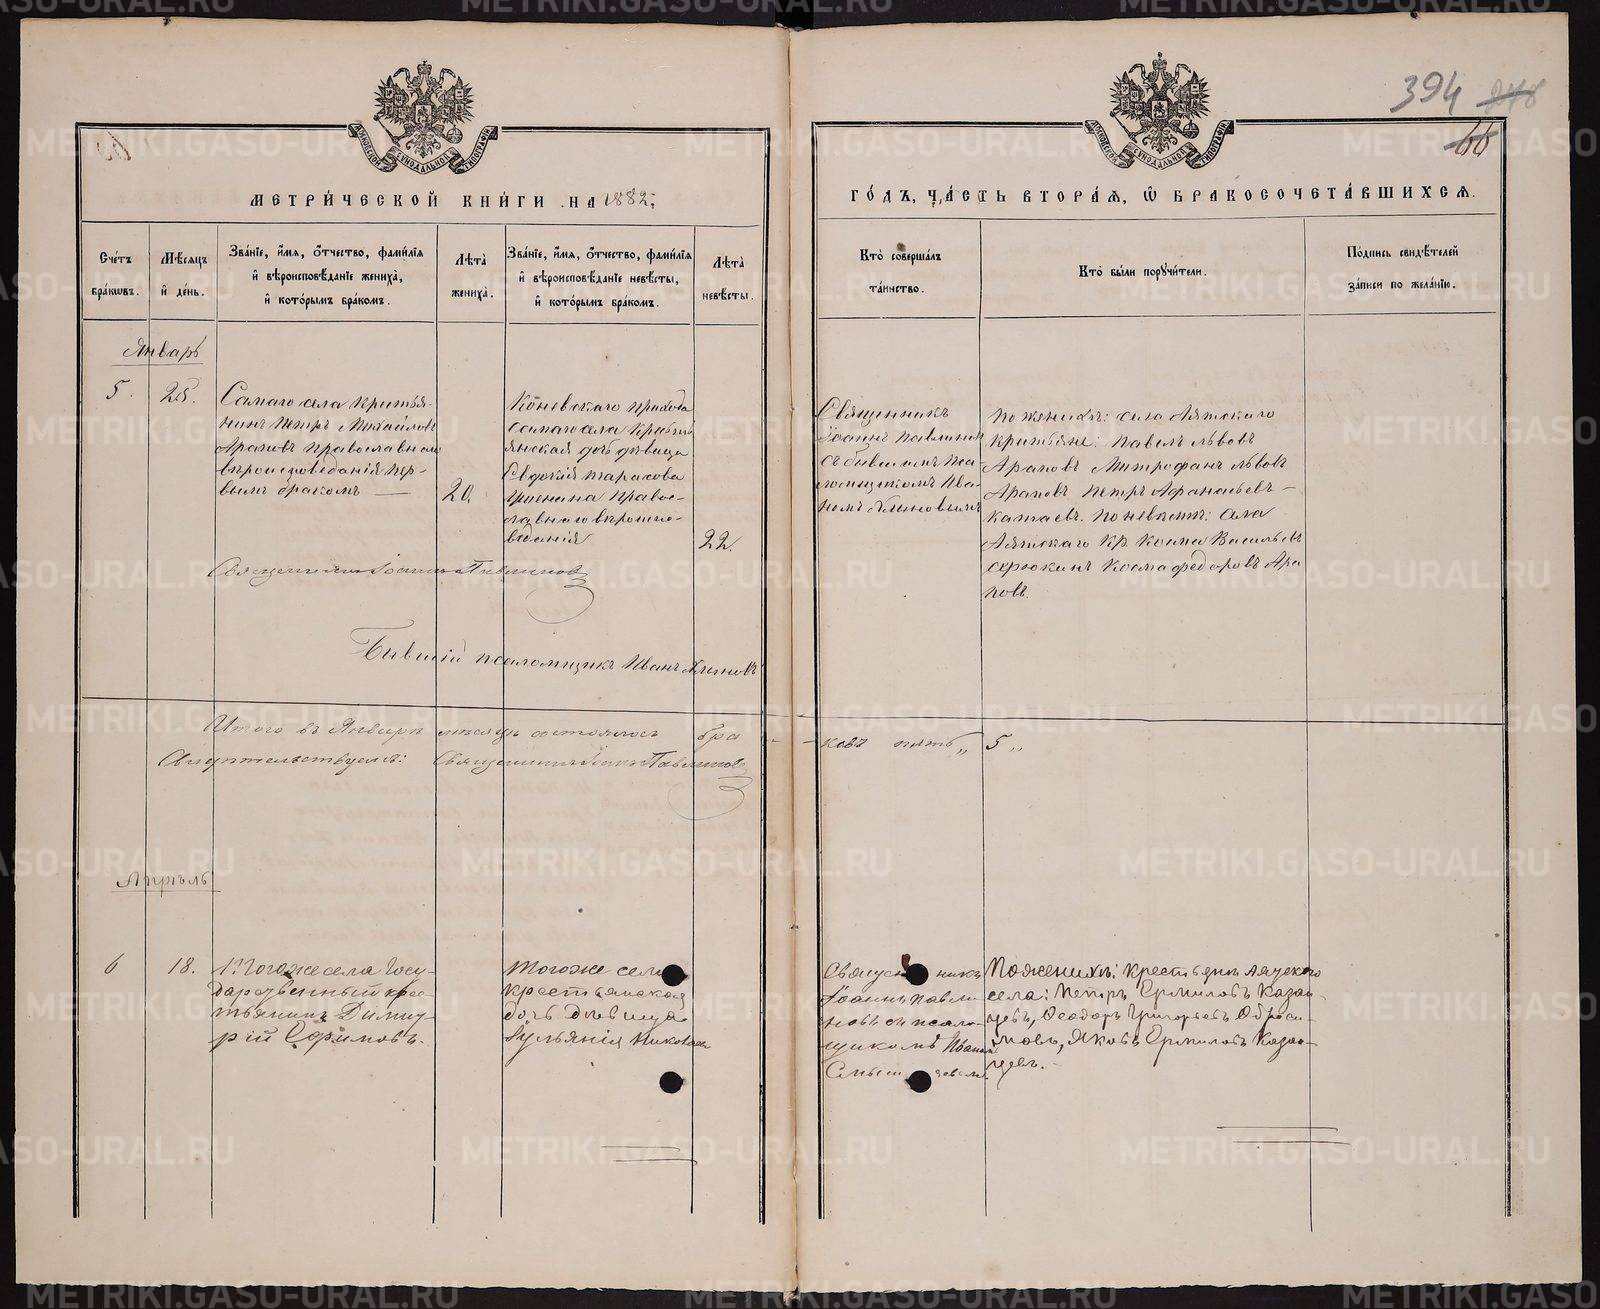 394 248
66
МЕТРИ́ЧЕСКОЙ КНИ́ГИ НА 1882
ГО́ДЪ, ЧА́СТЬ ВТОРА́Я, Ѽ БРАКОСОЧЕТА́ВШИХСЯ.
Сче́тъ бра́кѡвъ.
Мѣ́сяцъ и҆ де́нь.
Зва́нїе, и҆́мя, ѻ҆́тчество, фами́лїя и҆ вѣроисповѣ́данїе жениха̀, и҆ кото́рымъ бра́комъ.
Лѣта̀ жениха̀.
Зва́нїе, и҆́мя, ѻ҆́тчество, фами́лїя и҆ вѣроисповѣ́данїе невѣ́сты, и҆ кото́рымъ бра́комъ.
Лѣта̀ невѣ́сты.
Кто̀ соверша́лъ та́инство.
Кто̀ бы́ли пору́чители.
По́дпись свидѣ́телей за́писи по жела́нїю.
Январь
5.
25.
Самаго села крестья-
нинъ Петръ Михайловъ
Араповъ православнаго
вѣроисповѣданія пер-
вымъ бракомъ —
20.
Коневскаго прихода
самаго села крестья
янская дочь дѣвица
Евдокія Тарасова
православнаго вѣроиспо-
вѣданія
22.
Священникъ
Іоаннъ Павлиновъ
съ бывшимъ пса-
ломщикомъ Ива-
номъ
По женихѣ: села Аятскаго
крестьяне: Павелъ Львовъ
Араповъ Митрофанъ Львовъ
Араповъ Петръ Афанасьевъ
Катаевъ. По невѣстѣ: села
Аятскаго кр. Косма Васильевъ
Косма Федоровъ Ара
повъ.
Священникъ Іоаннъ Павлиновъ
Бывшій псаломщикъ Иванъ
Итого въ Январѣ мѣсяцѣ состоялось бра - - ковъ пять „ 5 „
Свидѣтельствуемъ: Священникъ Іоаннъ Павлиновъ
Апрѣль
6
18.
Тогоже села Госу-
дарственный крес-
тьянинъ Димит-
рій Ефимовъ.
Тогоже села
крестьянская
дочь дѣвица
Іульянія Николаева
Священникъ
Іоаннъ Павли-
новъ съ псалом-
щикомъ Иваномъ
По женихѣ: крестьяне Аятскаго
села: Петръ Ермиловъ Казан-
цевъ, Ѳеодоръ Григорьевъ Аброси-
мовъ, Яковъ Ермиловъ Казан-
цевъ.
METRIKI.GASO-URAL.RU